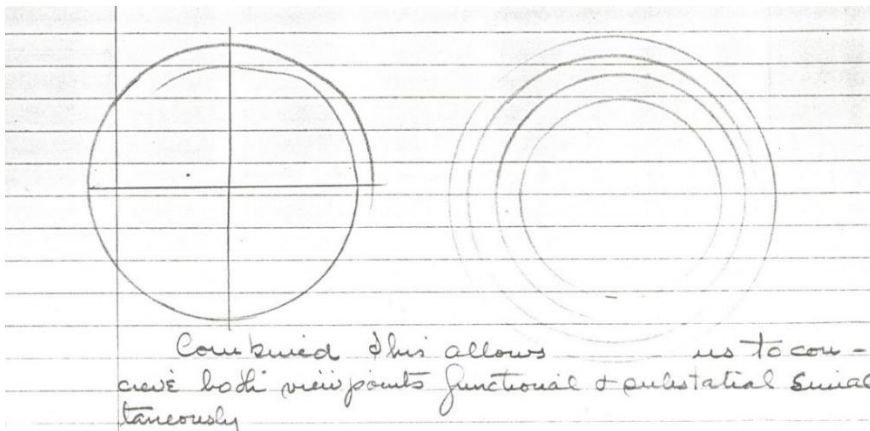 Combined This allows us to con-
cieve both viewpoints functional & substatial simul
taneously